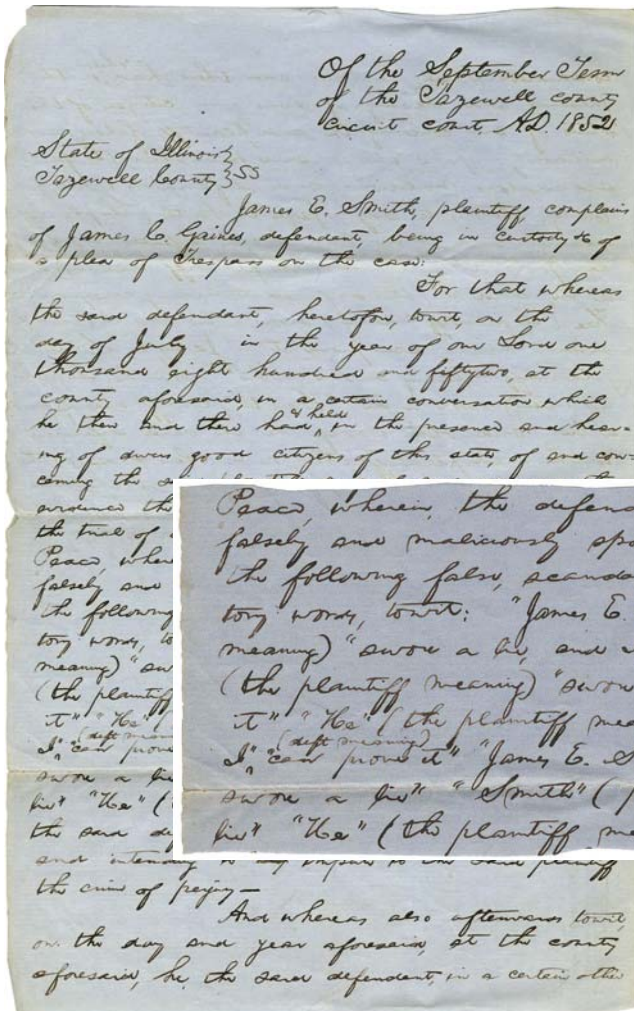 Of the September Term
of the Tazewell county
circuit court, A.D. 1852
State of Illinois }
Tazewell County } SS
James E. Smith, plaintiff, complains
of James C. Gaines, defendant, being in custody &c of
a plea of Trespass on the case:
For that whereas
the said defendant, heretofore, towit, on the
day of July in the year of our Lord one
thousand eight hundred and fiftytwo, at the
county aforesaid, in a certain conversation which
he then and there had & held, in the presence and hear-
ing of divers good citizens of this state, of and con-
cerning the
evidence the
the trial of
Peace, wher
falsely and
the following
tory words, to
meaning) "sw
(the plaintiff
it" "He" (
I" (deft meaning
"can prove
swore a lie
lie" "He" (
the said de
and intending to impute to the said plaintiff
the crime of perjury—
And whereas also afterwards towit,
on the day and year aforesaid, at the county
aforesaid, he, the said defendant, in a certain other
Peace, wherein, the defend
falsely and maliciously spo
the following false, scanda
tory words, towit: "James E.
meaning) "swore a lie, and
(the plaintiff meaning) "swore
it" "He" (the plaintiff mea
I" (deft meaning) "can prove it" "James E. S
swore a lie" "Smith" (
lie" "He" (the plaintiff me